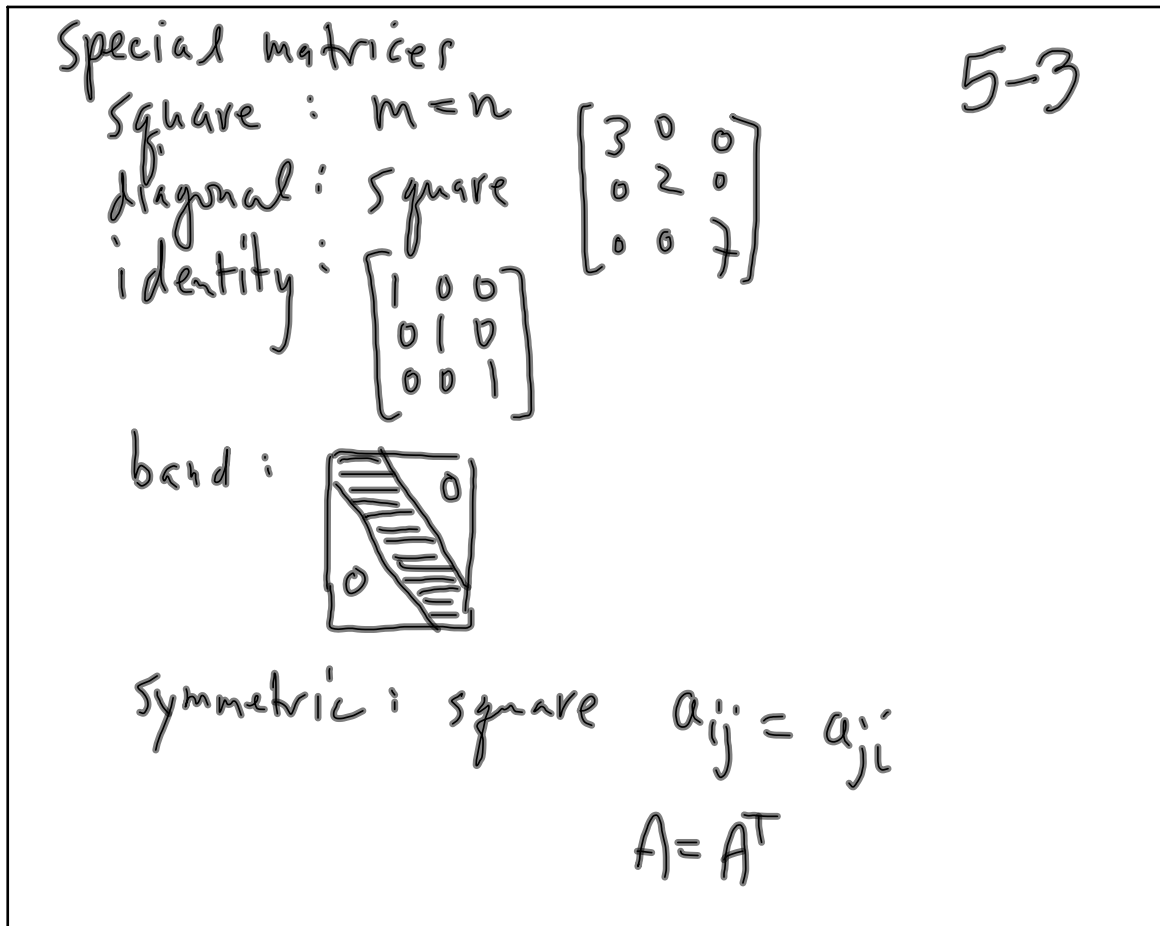 Special matrices
5-3
square : m = n
diagonal : square
[3 0 0
0 2 0
0 0 7]
identity :
[1 0 0
0 1 0
0 0 1]
band :
0
0
symmetric : square a_ij = a_ji
A = A^T